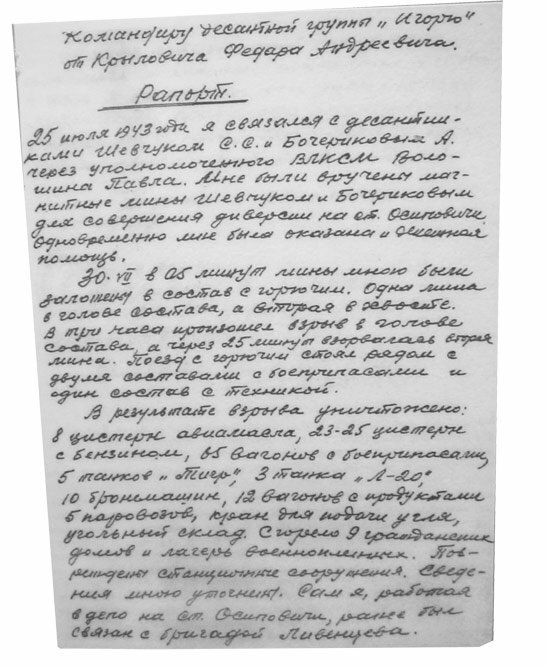 Командиру десантной группы „Игорю"
от Крыловича Федара Андреевича.
Рапорт.
25 июля 1943 года я связался с десантни-
ками Шевчуком С.С. и Бочериковым А.
через уполномоченного ВЛКСМ Воло-
шина Павла. Мне были вручены маг-
нитные мины Шевчуком и Бочериковым
для совершения диверсии на ст. Осиповичи.
Одновременно мне была оказана и денежная
помощь.
30.VII в 05 минут мины мною были
заложены в состав с горючим. Одна мина
в голове состава, а вторая в хвосте.
В три часа произошел взрыв в голове
состава, а через 25 минут взорвалась вторая
мина. Поезд с горючим стоял рядом с
двумя составами с боеприпасами и
один состав с техникой.
В результате взрыва уничтожено:
8 цистерн авиамасла, 23-25 цистерн
с бензином, 65 вагонов с боеприпасами,
5 танков „Тигр", 3 танка „Л-20",
10 бронемашин, 12 вагонов с продуктами
5 паровозов, кран для подачи угля,
угольный склад. Сгорело 9 гражданских
домов и лагерь военнопленных. Пов-
реждены станционные сооружения. Сведе-
ния мною уточнены. Сам я, работая
в депо на ст. Осиповичи, ранее был
связан с бригадой Ливенцева.